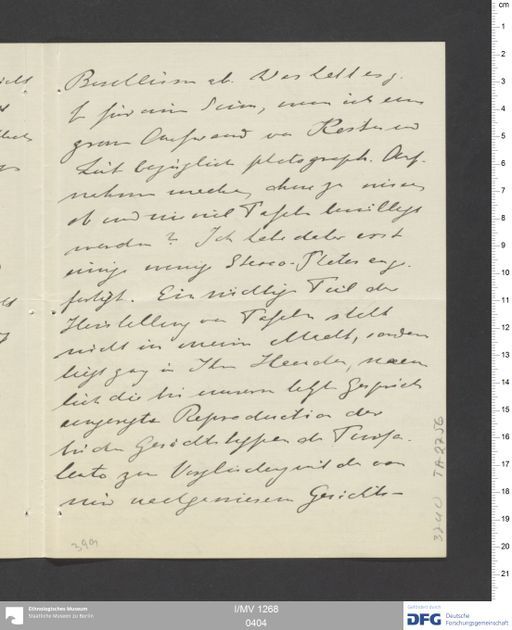 Beschlüssen ab. Was hätte es z.
B. für einen Sinn, wenn ich einen
grossen Aufwand von Kosten und
Zeit bezüglich photograph. Auf-
nahmen machen, ohne zu wissen
ob und wie viel Tafeln bewilligt
werden? Ich habe daher erst
einige wenige Stereo-Platten ange-
fertigt. Ein wichtiger Teil der
Herstellung von Tafeln steht
nicht in meiner Macht, sondern
liegt ganz in Ihren Händen, näm-
lich die bei unserem letzten Gespräch
angeregte Reproduction der
beiden Gesichtstypen
zur Vergleichung mit den von
mir nachgewiesenen Gesichts-
399
I/MV 1268
0404
Ethnologisches Museum
Staatliche Museen zu Berlin
Gefördert durch
DFG
Deutsche
Forschungsgemeinschaft
cm
1
2
3
4
5
6
7
8
9
10
11
12
13
14
15
16
17
18
19
20
21